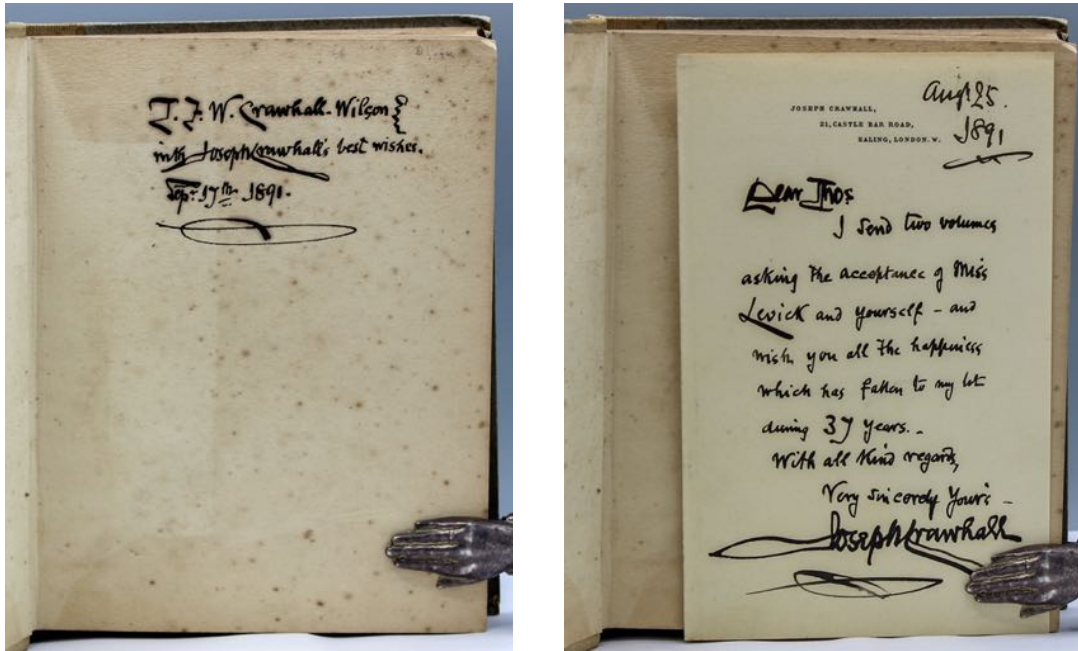 T. F. W. Crawhall-Wilson
with Joseph Crawhall's best wishes.
Sep: 17th 1891.
Augt 25.
1891
JOSEPH CRAWHALL,
21, CASTLE BAR ROAD,
EALING, LONDON. W.
Dear Thos
I send two volumes
asking the acceptance of Miss
Levick and yourself – and
wish you all the happiness
which has fallen to my lot
during 37 years. –
With all kind regards,
Very sincerely Yours –
Joseph Crawhall